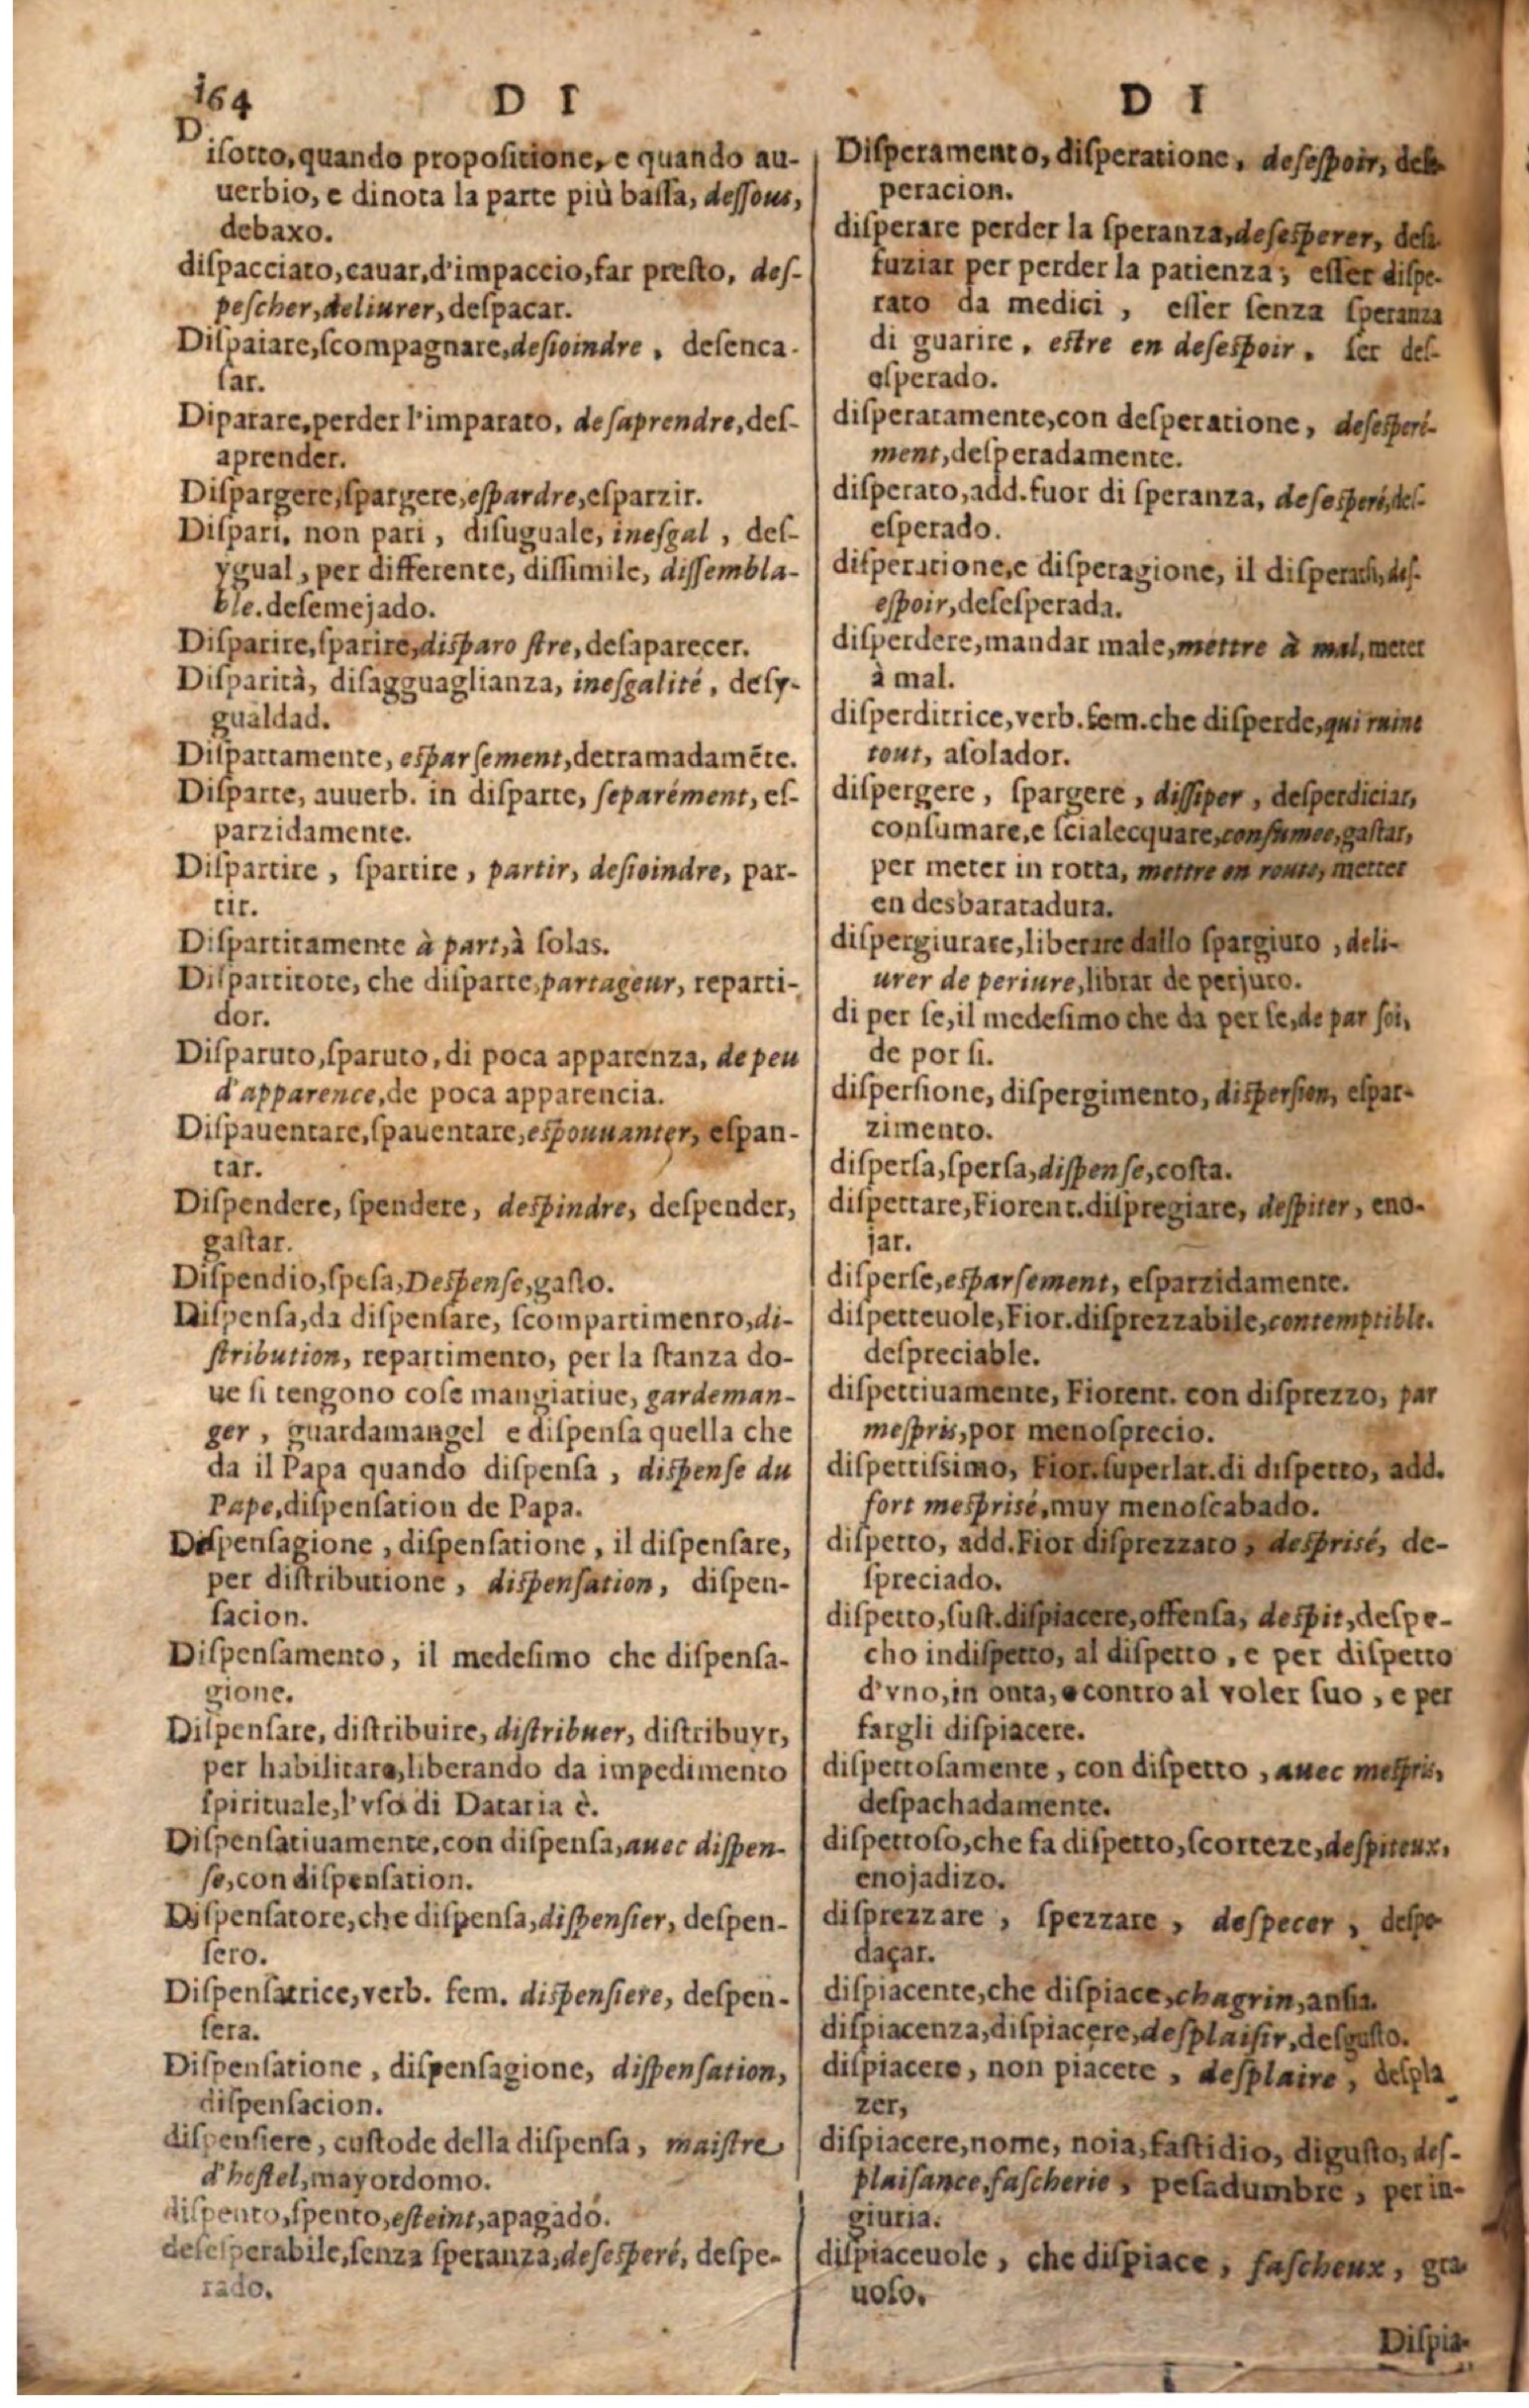 164 D I
Diſotto, quando propoſitione, e quando au-
uerbio, e dinota la parte più baſſa, deſſous,
debaxo.
diſpacciato, cauar, d'impaccio, far preſto, deſ-
peſcher, deliurer, deſpacar.
Diſpaiare, ſcompagnare, deſioindre, deſenca-
ſar.
Diparare, perder l'imparato, deſaprendre, deſ-
aprender.
Diſpargere, ſpargere, eſpardre, eſparzir.
Diſpari, non pari, diſuguale, ineſgal, deſ-
ygual, per differente, diſſimile, diſſembla-
ble. deſemejado.
Diſparire, ſparire, diſparo ſtre, deſaparecer.
Diſparità, diſagguaglianza, ineſgalité, deſy-
gualdad.
Diſpartamente, eſparſement, derramadamẽte.
Diſparte, auuerb. in diſparte, ſeparément, eſ-
parzidamente.
Diſpartire, ſpartire, partir, deſioindre, par-
tir.
Diſpartitamente à part, à ſolas.
Diſpartitore, che diſparte, partageur, reparti-
dor.
Diſparuto, ſparuto, di poca apparenza, de peu
d'apparence, de poca apparencia.
Diſpauentare, ſpauentare, eſpouuanter, eſpan-
tar.
Diſpendere, ſpendere, deſpindre, deſpender,
gaſtar.
Diſpendio, ſpeſa, Deſpenſe, gaſto.
Diſpenſa, da diſpenſare, ſcompartimenro, di-
ſtribution, repartimento, per la ſtanza do-
ue ſi tengono coſe mangiatiue, gardeman-
ger, guardamangel e diſpenſa quella che
da il Papa quando diſpenſa, diſpenſe du
Pape, diſpenſation de Papa.
Diſpenſagione, diſpenſatione, il diſpenſare,
per diſtributione, diſpenſation, diſpen-
ſacion.
Diſpenſamento, il medeſimo che diſpenſa-
gione.
Diſpenſare, diſtribuire, diſtribuer, diſtribuyr,
per habilitara, liberando da impedimento
ſpirituale, l'vſo di Dataria è.
Diſpenſatiuamente, con diſpenſa, auec diſpen-
ſe, con diſpenſation.
Diſpenſatore, che diſpenſa, diſpenſier, deſpen-
ſero.
Diſpenſatrice, verb. fem. diſpenſiere, deſpen-
ſera.
Diſpenſatione, diſpenſagione, diſpenſation,
diſpenſacion.
diſpenſiere, cuſtode della diſpenſa, maiſtre
d'hoſtel, mayordomo.
diſpento, ſpento, eſteint, apagado.
deſeſperabile, ſenza ſperanza, deſeſperé, deſpe-
rado.
D I
Diſperamento, diſperatione, deſeſpoir, deſeſ-
peracion.
diſperare perder la ſperanza, deſeſperer, deſa-
fuziar per perder la patienza; eſſer diſpe-
rato da medici, eſſer ſenza ſperanza
di guarire, eſtre en deſeſpoir. ſer deſ-
eſperado.
diſperatamente, con deſperatione, deſeſperé-
ment, deſperadamente.
diſperato, add. fuor di ſperanza, deſeſperé, deſ-
eſperado.
diſperatione, e diſperagione, il diſperarſi, deſ-
eſpoir, deſeſperada.
diſperdere, mandar male, mettre à mal, meter
à mal.
diſperditrice, verb. fem. che diſperde, qui ruine
tout, aſolador.
diſpergere, ſpargere, diſſiper, deſperdiciar,
conſumare, e ſcialecquare, conſumee, gaſtar,
per meter in rotta, mettre en route, metter
en desbaratadura.
diſpergiurare, liberare dallo ſpargiuro, deli-
urer de periure, librar de perjuro.
di per ſe, il medeſimo che da per ſe, de par ſoi,
de por ſi.
diſperſione, diſpergimento, diſperſion, eſpar-
zimento.
diſperſa, ſperſa, diſpenſe, coſta.
diſpettare, Fiorent. diſpregiare, deſpiter, eno-
jar.
diſperſe, eſparſement, eſparzidamente.
diſpetteuole, Fior. diſprezzabile, contemptible.
deſpreciable.
diſpettiuamente, Fiorent. con diſprezzo, par
meſpris, por menoſprecio.
diſpettiſsimo, Fior. ſuperlat. di diſpetto, add.
fort meſprisé, muy menoſcabado.
diſpetto, add. Fior diſprezzato, deſprisé, de-
ſpreciado.
diſpetto, ſuſt. diſpiacere, offenſa, deſpit, deſpe-
cho indiſpetto, al diſpetto, e per diſpetto
d'vno, in onta, e contro al voler ſuo, e per
fargli diſpiacere.
diſpettoſamente, con diſpetto, auec meſpris,
deſpachadamente.
diſpettoſo, che fa diſpetto, ſcorteze, deſpiteux,
enojadizo.
diſprezzare, ſpezzare, deſpecer, deſpe-
daçar.
diſpiacente, che diſpiace, chagrin, anſia.
diſpiacenza, diſpiacere, deſplaiſir, deſguſto.
diſpiacere, non piacere, deſplaire, deſpla
zer,
diſpiacere, nome, noia, faſtidio, diguſto, deſ-
plaiſance, faſcherie, peſadumbre, per in-
giuria.
diſpiaceuole, che diſpiace, faſcheux, gra-
uoſo.
Diſpia-